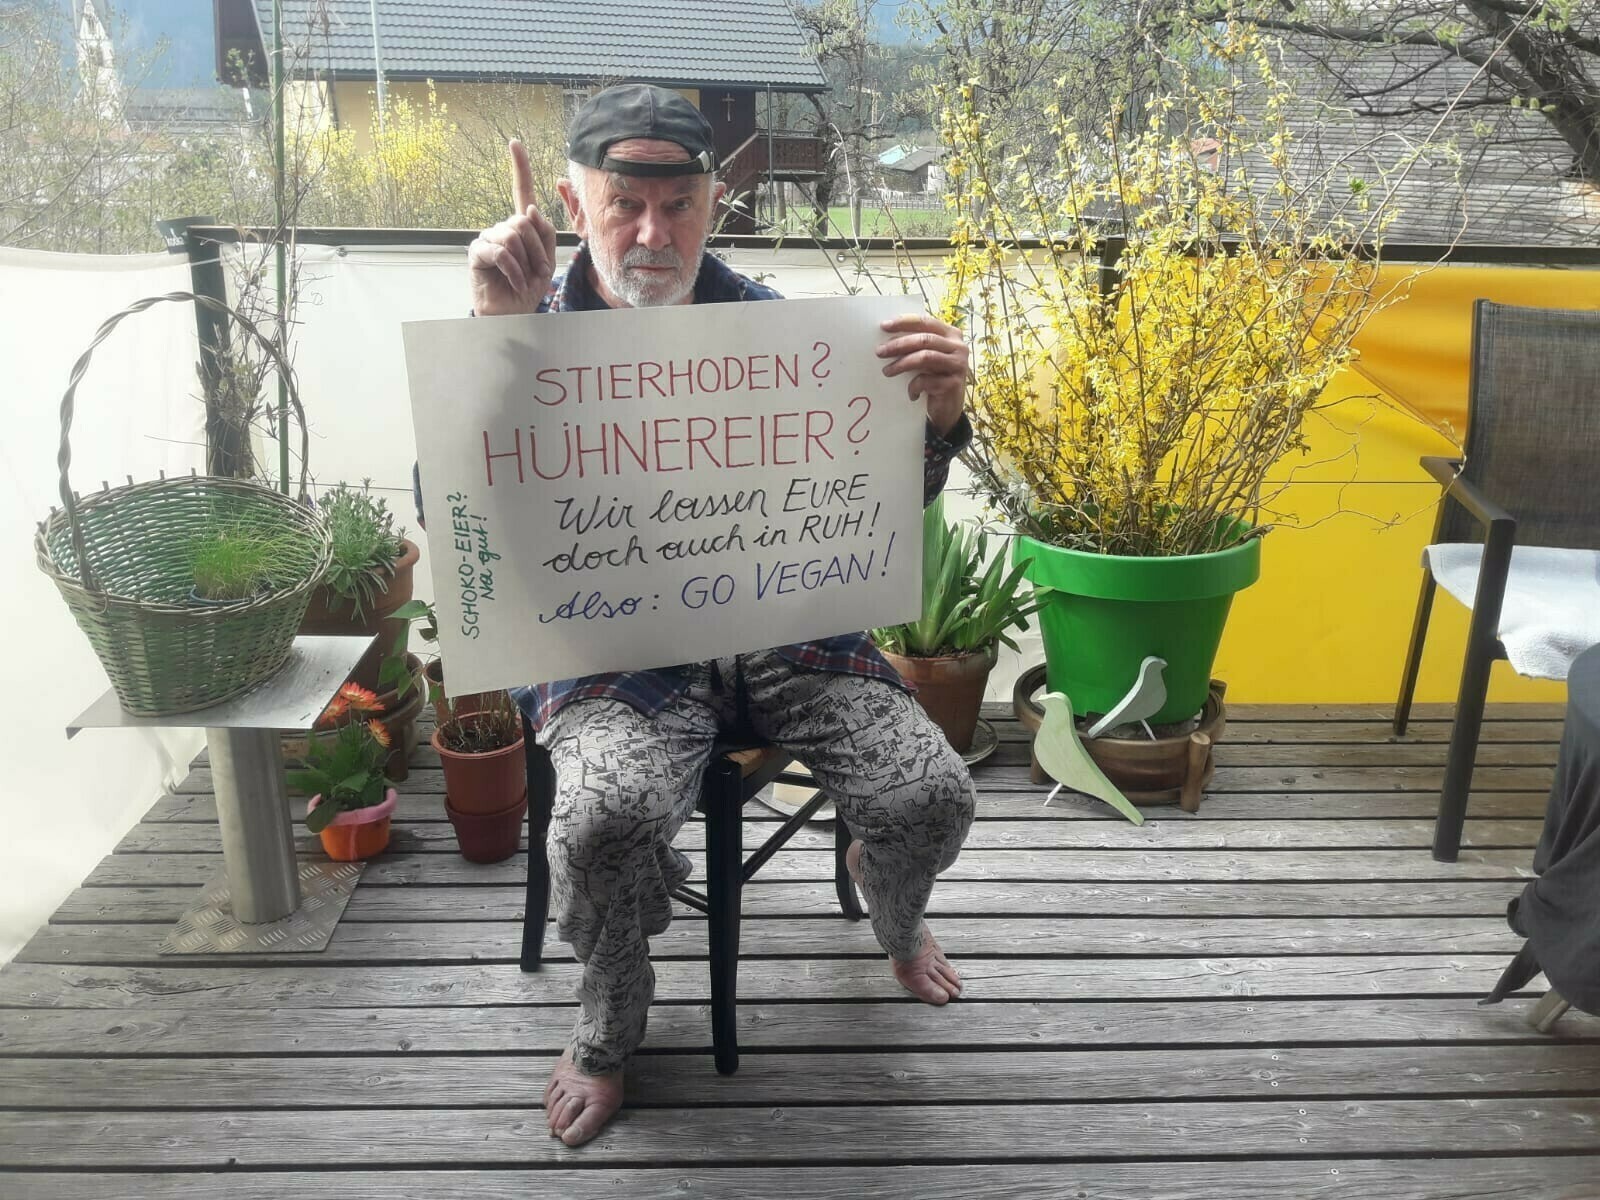 STIERHODEN?
HÜHNEREIER?
Wir lassen EURE
doch auch in RUH!
Also: GO VEGAN!
SCHOKO-EIER?
Na gut!